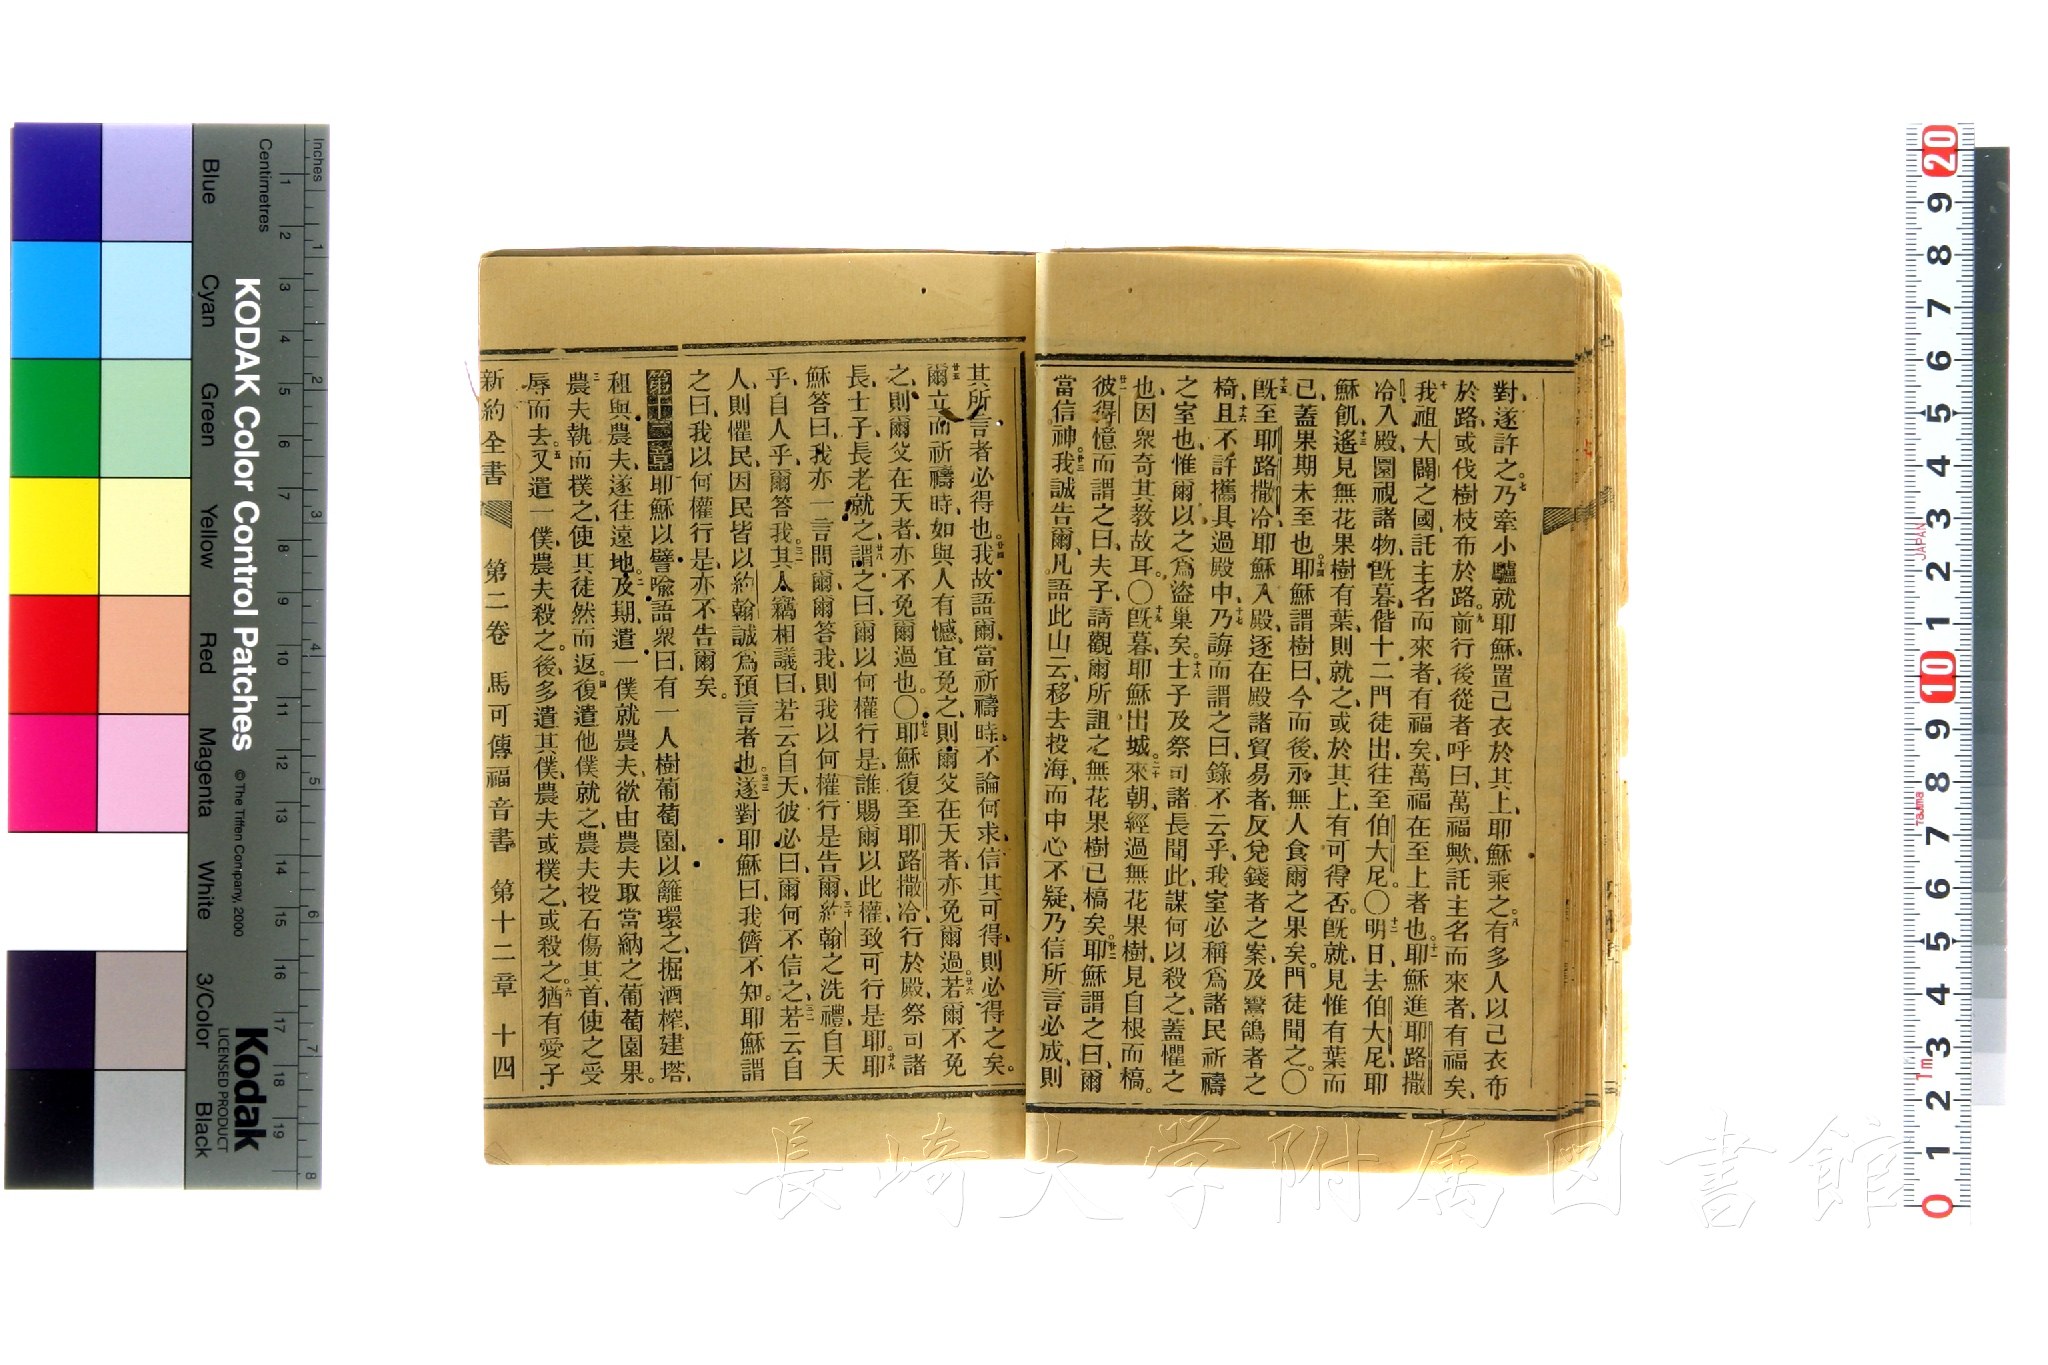 對、遂許之。七乃牽小驢就耶穌、置己衣於其上、耶穌乘之。八有多人以己衣布
於路、或伐樹枝布於路。九前行後從者呼曰、萬福歟、託主名而來者、有福矣、
十我祖大闢之國、託主名而來者、有福矣、萬福在至上者也。十一耶穌進耶路撒
冷、入殿、圜視諸物、旣暮、偕十二門徒出、往至伯大尼。〇十二明日去伯大尼、耶
穌飢、十三遙見無花果樹有葉、則就之、或於其上、有可得否。旣就、見惟有葉而
已、蓋果期未至也。十四耶穌謂樹曰、今而後、永無人食爾之果矣。門徒聞之。〇
十五旣至耶路撒冷、耶穌入殿、逐在殿諸貿易者、反兌錢者之案、及鬻鴿者之
椅、十六且不許攜具過殿中、十七乃誨而謂之曰、錄不云乎、我室必稱爲諸民祈禱
之室也、惟爾以之爲盜巢矣。十八士子及祭司諸長聞此、謀何以殺之、蓋懼之
也、因衆奇其教故耳。〇十九旣暮、耶穌出城。二十來朝、經過無花果樹、見自根而槁。
廿一彼得憶而謂之曰、夫子、請觀爾所詛之無花果樹已槁矣。廿二耶穌謂之曰、爾
當信神。廿三我誠告爾、凡語此山云、移去投海、而中心不疑、乃信所言必成、則
其所言者必得也。廿四我故語爾、當祈禱時、不論何求、信其可得、則必得之矣。
廿五爾立而祈禱時、如與人有憾、宜免之、則爾父在天者、亦免爾過。廿六若爾不免
之、則爾父在天者、亦不免爾過也。〇廿七耶穌復至耶路撒冷、行於殿、祭司諸
長、士子、長老就之、廿八謂之曰、爾以何權行是、誰賜爾以此權、致可行是耶。廿九耶
穌答曰、我亦一言問爾、爾答我、則我以何權行是告爾。三十約翰之洗禮、自天
乎、自人乎、爾答我。三一其人竊相議曰、若云自天、彼必曰、爾何不信之、三二若云自
人、則懼民、因民皆以約翰誠爲預言者也。三三遂對耶穌曰、我儕不知。耶穌謂
之曰、我以何權行是、亦不告爾矣。
第十二章耶穌以譬喩語衆曰、有一人樹葡萄園、以籬環之、掘酒榨、建塔、
租與農夫、遂往遠地。二及期、遣一僕就農夫、欲由農夫取當納之葡萄園果。
三農夫執而撲之、使其徒然而返。四復遣他僕就之、農夫投石傷其首、使之受
辱而去。五又遣一僕、農夫殺之。後多遣其僕、農夫或撲之、或殺之。六猶有愛子
新約全書 第二卷 馬可傳福音書 第十二章 十四
長崎大学附属図書館
KODAK Color Control Patches
© The Tiffen Company, 2000
Kodak
LICENSED PRODUCT
Inches
1 2 3 4 5 6 7 8
Centimetres
1 2 3 4 5 6 7 8 9 10 11 12 13 14 15 16 17 18 19
Blue
Cyan
Green
Yellow
Red
Magenta
White
3/Color
Black
20 9 8 7 6 5 4 3 2 1 10 9 8 7 6 5 4 3 2 1 0
JAPAN
Tajima
1m